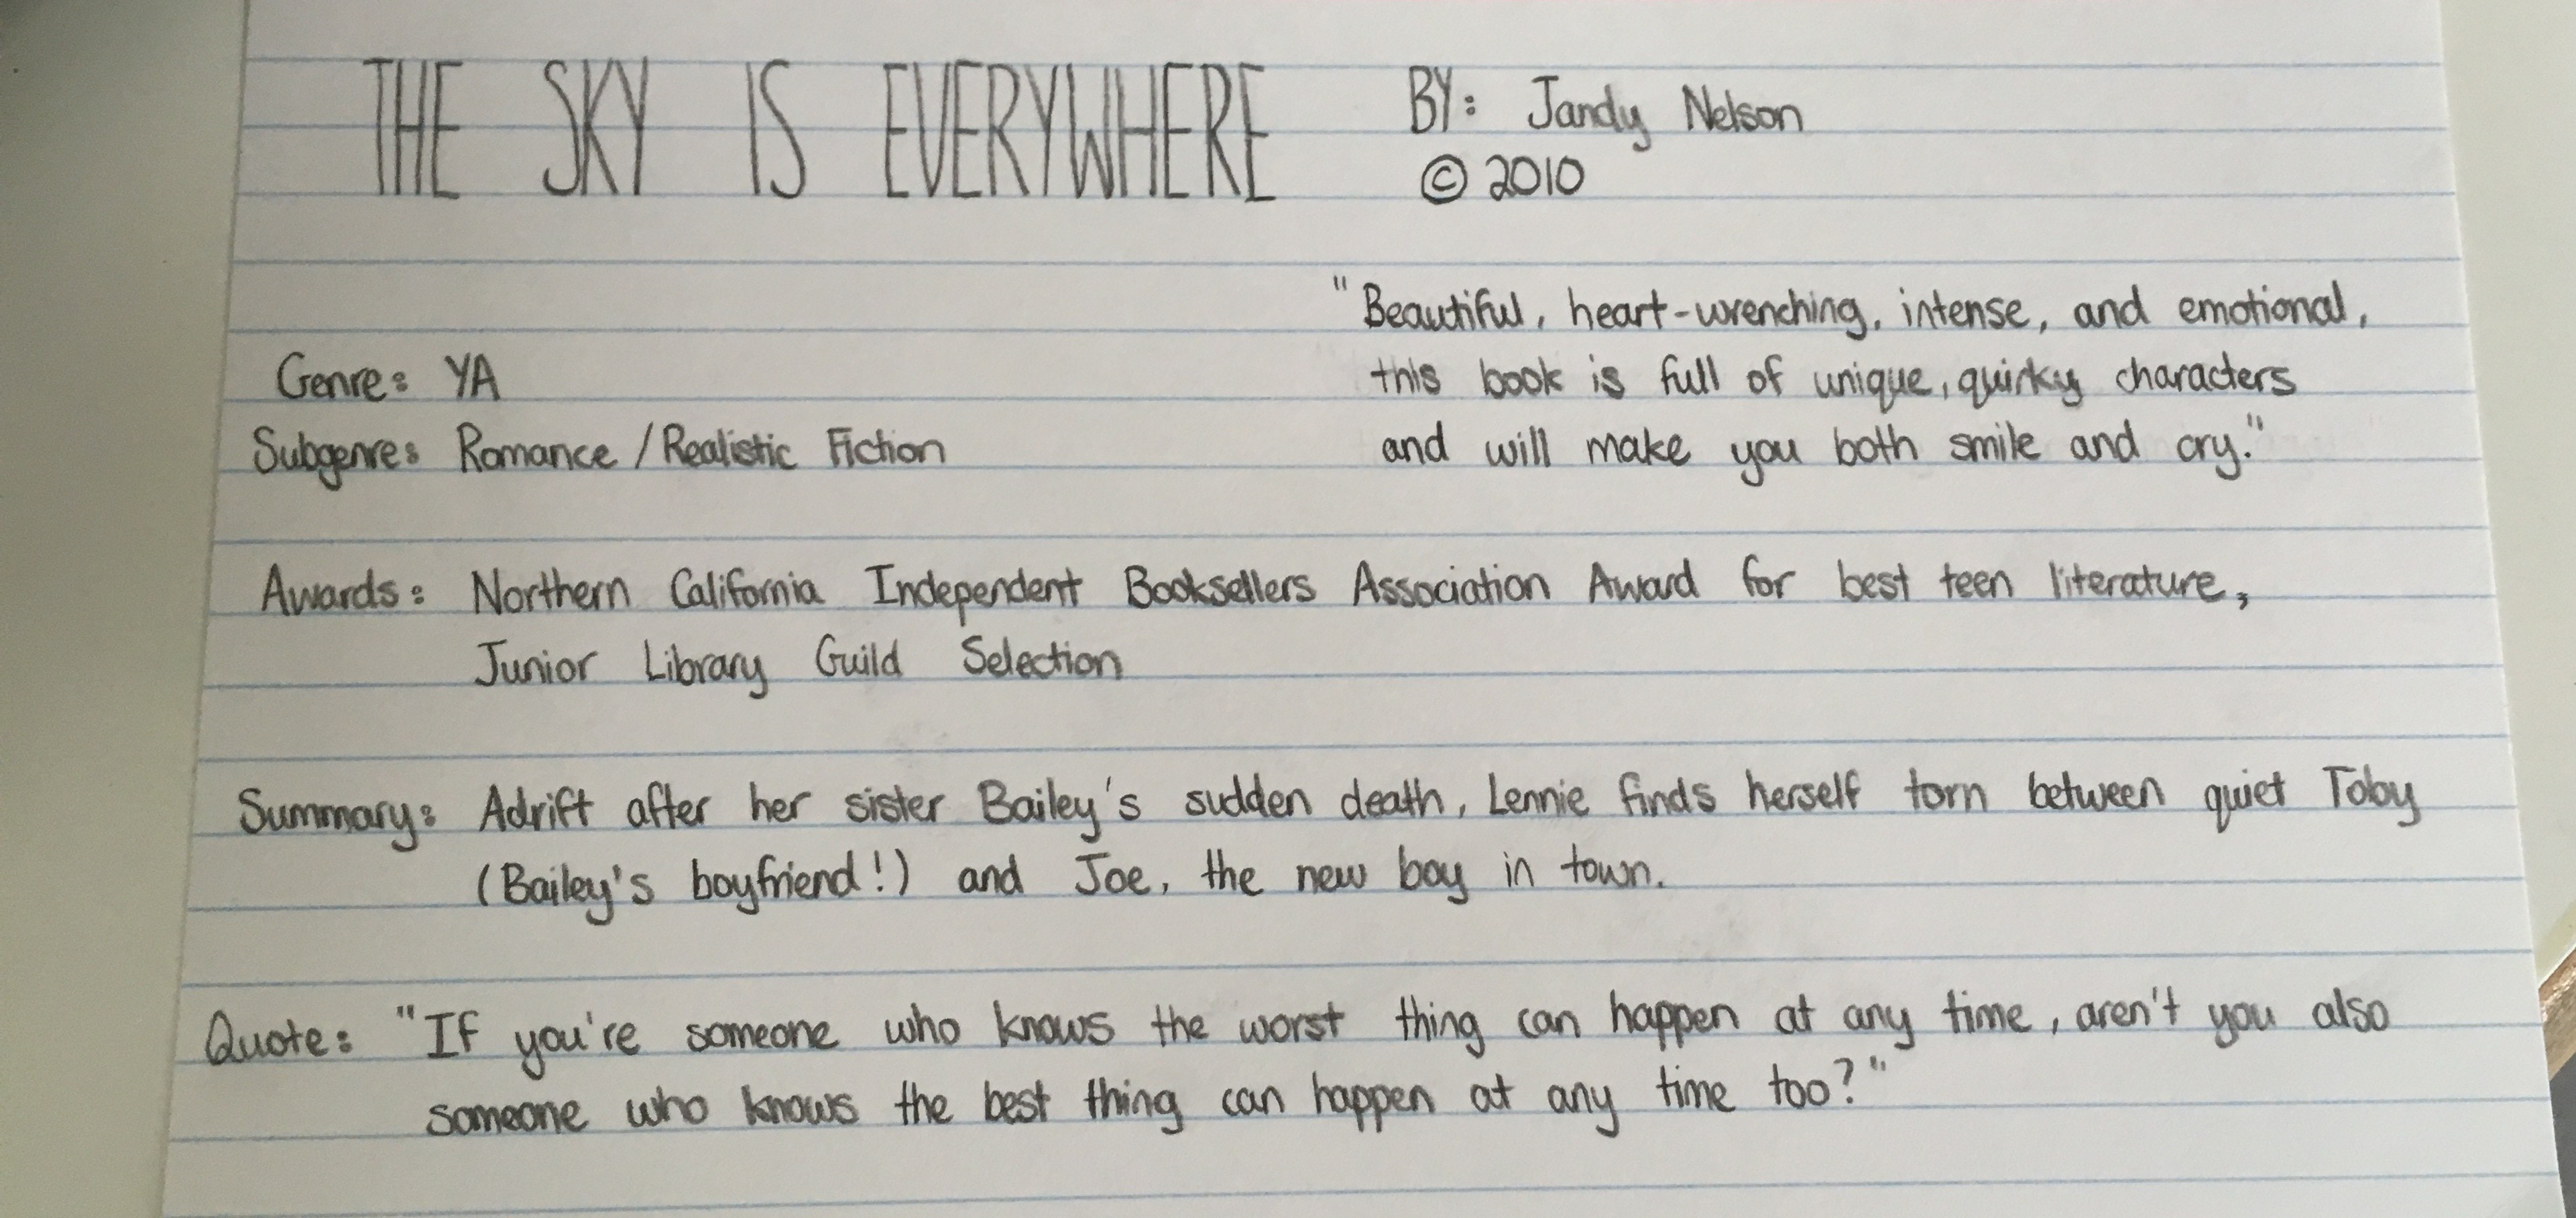 THE SKY IS EVERYWHERE
BY: Jandy Nelson
© 2010
"Beautiful, heart-wrenching, intense, and emotional,
this book is full of unique, quirky characters
and will make you both smile and cry."
Genre: YA
Subgenre: Romance / Realistic Fiction
Awards: Northern California Independent Booksellers Association Award for best teen literature,
Junior Library Guild Selection
Summary: Adrift after her sister Bailey's sudden death, Lennie finds herself torn between quiet Toby
(Bailey's boyfriend!) and Joe, the new boy in town.
Quote: "If you're someone who knows the worst thing can happen at any time, aren't you also
someone who knows the best thing can happen at any time too?"